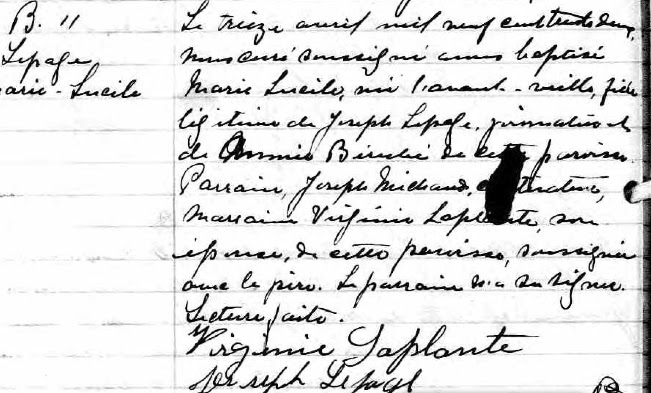 B. 11
Lepage
Marie-Lucile
Le treize avril mil neuf cent trente deux,
nous curé soussigné avons baptisé
Marie Lucile, née l'avant-veille, fille
légitime de Joseph Lepage, journalier et
de de cette paroisse.
Parrain, Joseph Michaud,
marraine Virginie Laplante, son
épouse, de cette paroisse, soussignée
avec le père. Le parrain n'a su signer.
Lecture faite.
Virginie Laplante
Joseph Lepage